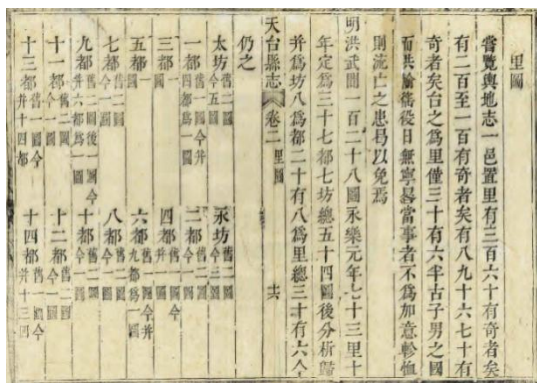 里圖
嘗覽輿地志一邑置里有三百六十有奇者矣
有二百至一百有奇者矣有八九十六七十有
奇者矣台之爲里僅三十有六半古子男之國
而共徭役日無寧晷當事者不爲加意軫恤
則流亡之患曷以免焉
明洪武間一百二十八圖永樂元年七十三里十
年定爲三十七都七坊總五十四圖後分析歸
并爲坊八爲都二十有八爲里總三十有六今
天台縣志 卷二 里圖 十六
仍之
太坊舊二圖今五圖 永坊舊二圖今三圖
一都舊一圖今并四都爲一圖 二都舊一圖今一圖
三都一圖 四都舊一圖今并圖
五都一圖 六都舊一圖今并九都爲一圖
七都舊二圖今一圖 八都舊二圖今一圖
九都舊二圖後一圖今并六都爲一圖 十都舊一圖今一圖
十一都舊二圖今一圖 十二都舊二圖今一圖
十三都舊一圖今并十四都 十四都舊一圖今并十三